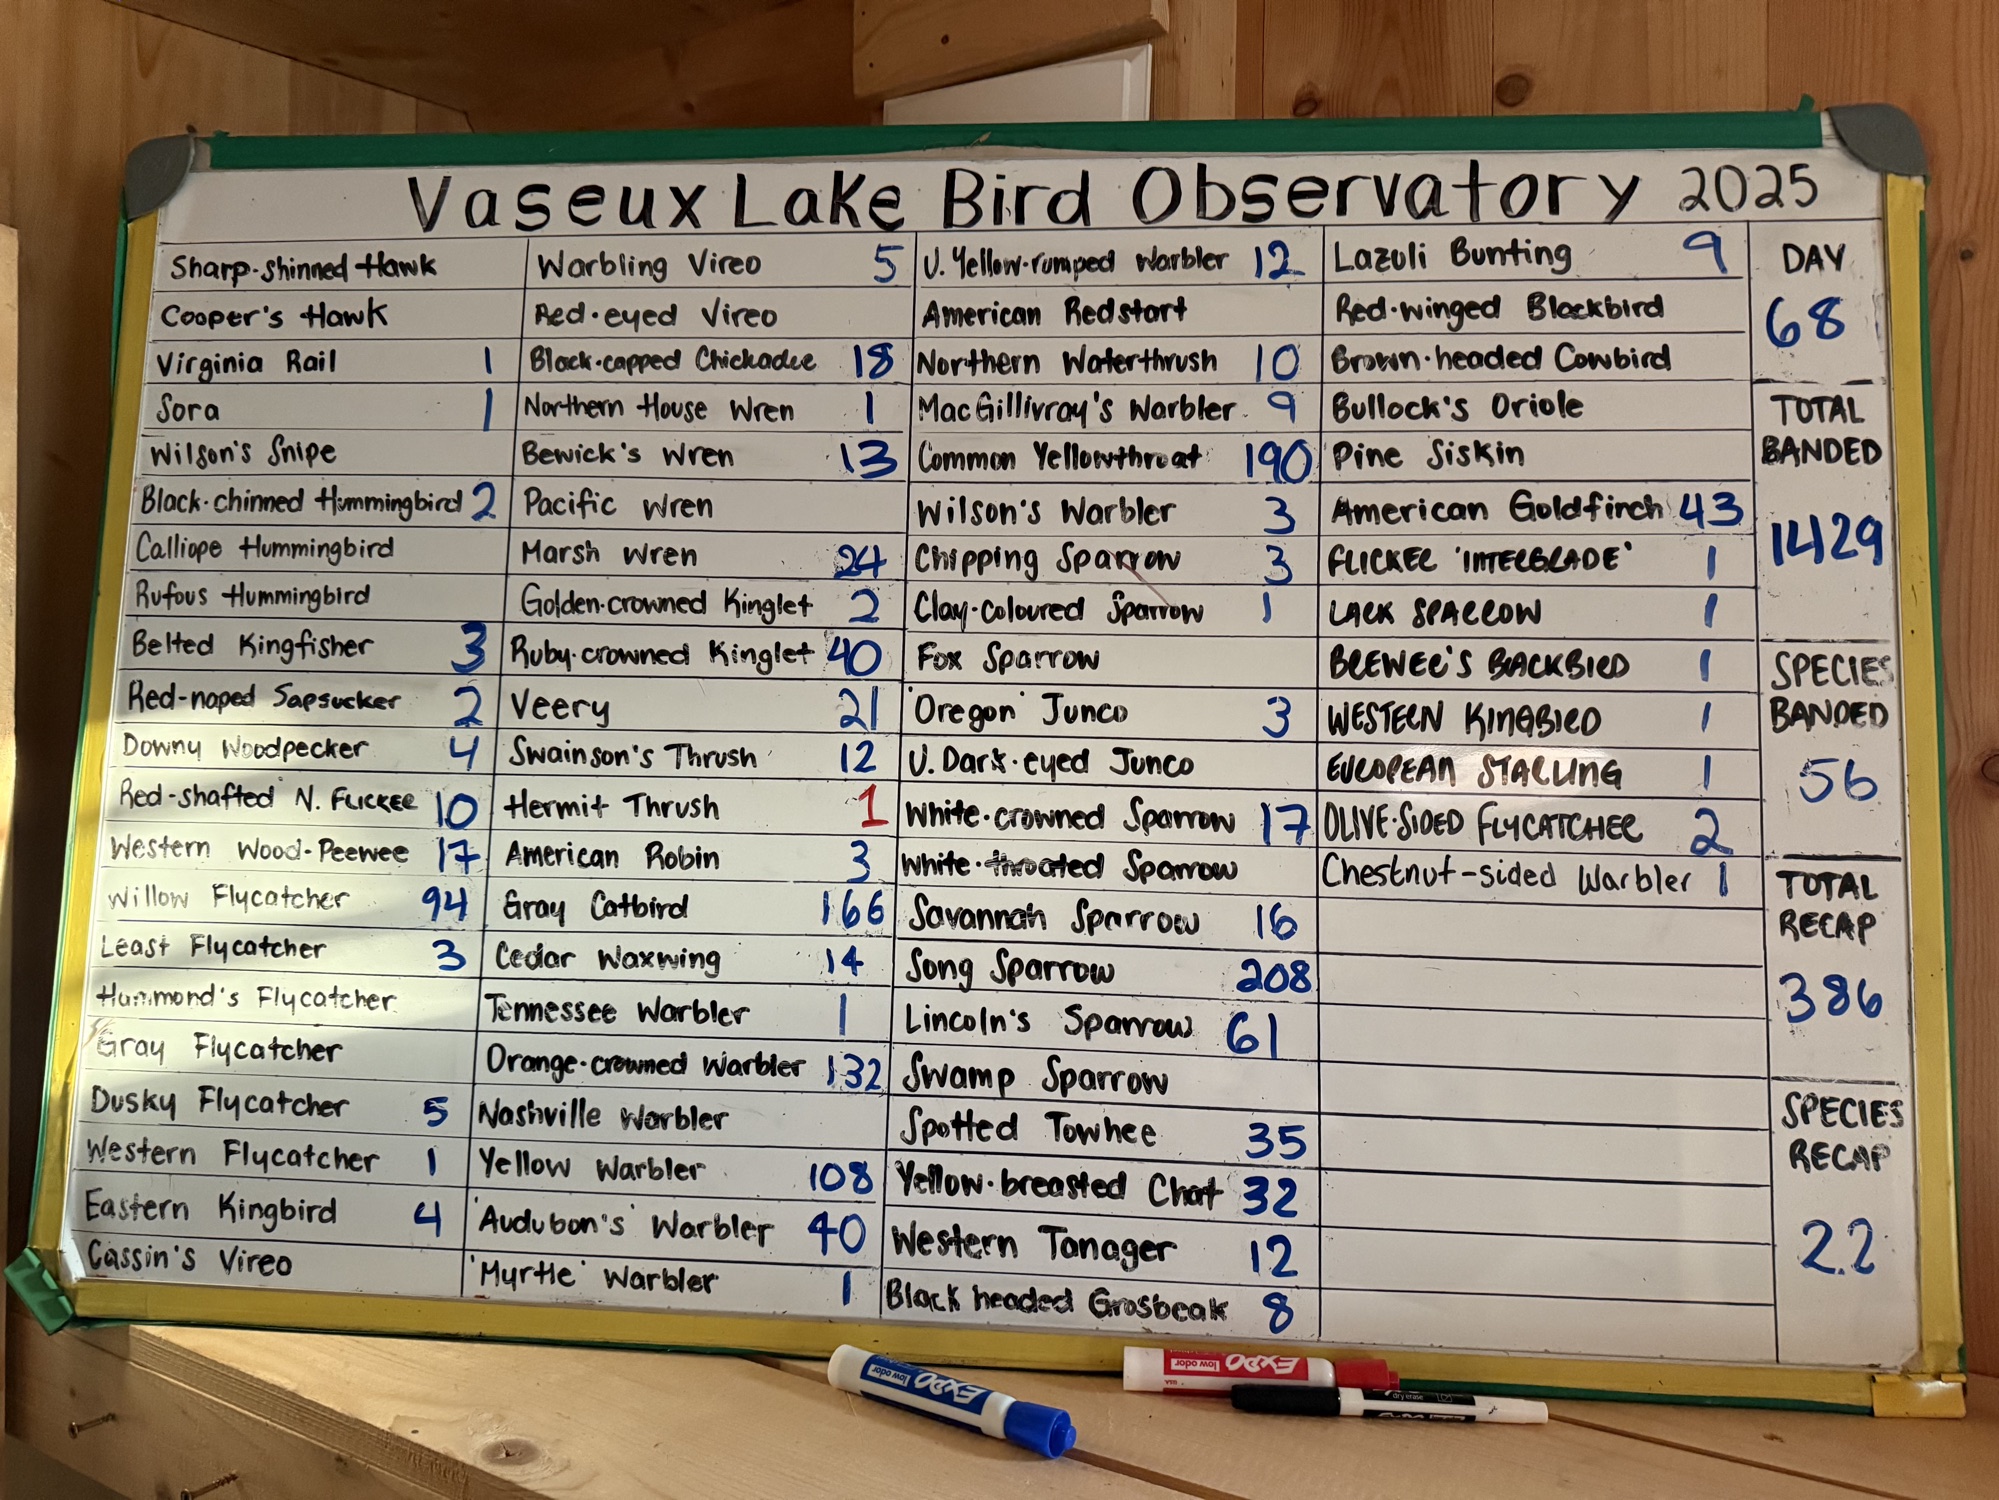 Vaseux Lake Bird Observatory 2025
Sharp-shinned Hawk
Cooper's Hawk
Virginia Rail 1
Sora 1
Wilson's Snipe
Black-chinned Hummingbird 2
Calliope Hummingbird
Rufous Hummingbird
Belted Kingfisher 3
Red-naped Sapsucker 2
Downy Woodpecker 4
Red-shafted N. FLICKER 10
Western Wood-Peewee 17
Willow Flycatcher 94
Least Flycatcher 3
Hammond's Flycatcher
Gray Flycatcher
Dusky Flycatcher 5
Western Flycatcher 1
Eastern Kingbird 4
Cassin's Vireo
Warbling Vireo 5
Red-eyed Vireo
Black-capped Chickadee 18
Northern House Wren 1
Bewick's Wren 13
Pacific Wren
Marsh Wren 24
Golden-crowned Kinglet 2
Ruby-crowned Kinglet 40
Veery 21
Swainson's Thrush 12
Hermit Thrush 1
American Robin 3
Gray Catbird 166
Cedar Waxwing 14
Tennessee Warbler 1
Orange-crowned Warbler 132
Nashville Warbler
Yellow Warbler 108
'Audubon's' Warbler 40
'Myrtle' Warbler 1
U. Yellow-rumped Warbler 12
American Redstart
Northern Waterthrush 10
MacGillivray's Warbler 9
Common Yellowthroat 190
Wilson's Warbler 3
Chipping Sparrow 3
Clay-coloured Sparrow 1
Fox Sparrow
'Oregon' Junco 3
U. Dark-eyed Junco
White-crowned Sparrow 17
White-throated Sparrow
Savannah Sparrow 16
Song Sparrow 208
Lincoln's Sparrow 61
Swamp Sparrow
Spotted Towhee 35
Yellow-breasted Chat 32
Western Tanager 12
Black headed Grosbeak 8
Lazuli Bunting 9
Red-winged Blackbird
Brown-headed Cowbird
Bullock's Oriole
Pine Siskin
American Goldfinch 43
FLICKER 'INTERGRADE' 1
LARK SPARROW 1
BREWER'S BLACKBIRD 1
WESTERN KINGBIRD 1
EUROPEAN STARLING 1
OLIVE-SIDED FLYCATCHER 2
Chestnut-sided Warbler 1
DAY
68
TOTAL
BANDED
1429
SPECIES
BANDED
56
TOTAL
RECAP
386
SPECIES
RECAP
22
EXPO
low odor
EXPO
low odor
dry erase